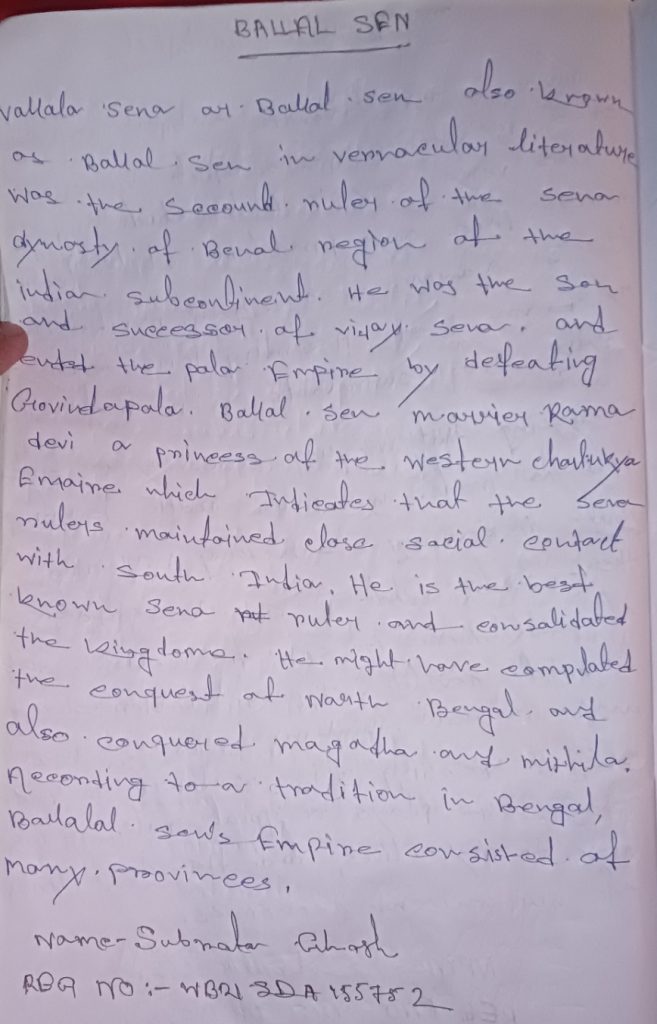 BALLAL SEN
vallala sena ar Ballal sen also known
as Ballal sen in vernacular literature
was the secound ruler of the sena
dynosty of Benal region of the
indian subcontinent. He was the son
and successor of vijay sena. and
ended the pala Empire by defeating
Govindapala. Ballal sen marrier Rama
devi a princess of the western chalukya
Emaire which Indicates that the sena
rulers maintained close social contact
with south India. He is the best
known sena ruler and consalidated
the kingdome. He might have complated
the conquest of north Bengal and
also conquered magadha and mithila.
According to a tradition in Bengal,
Ballalal sen's Empire consisted of
many proovinces.
Name- Subrata Ghosh
REG NO :- WB21 SDA 155752